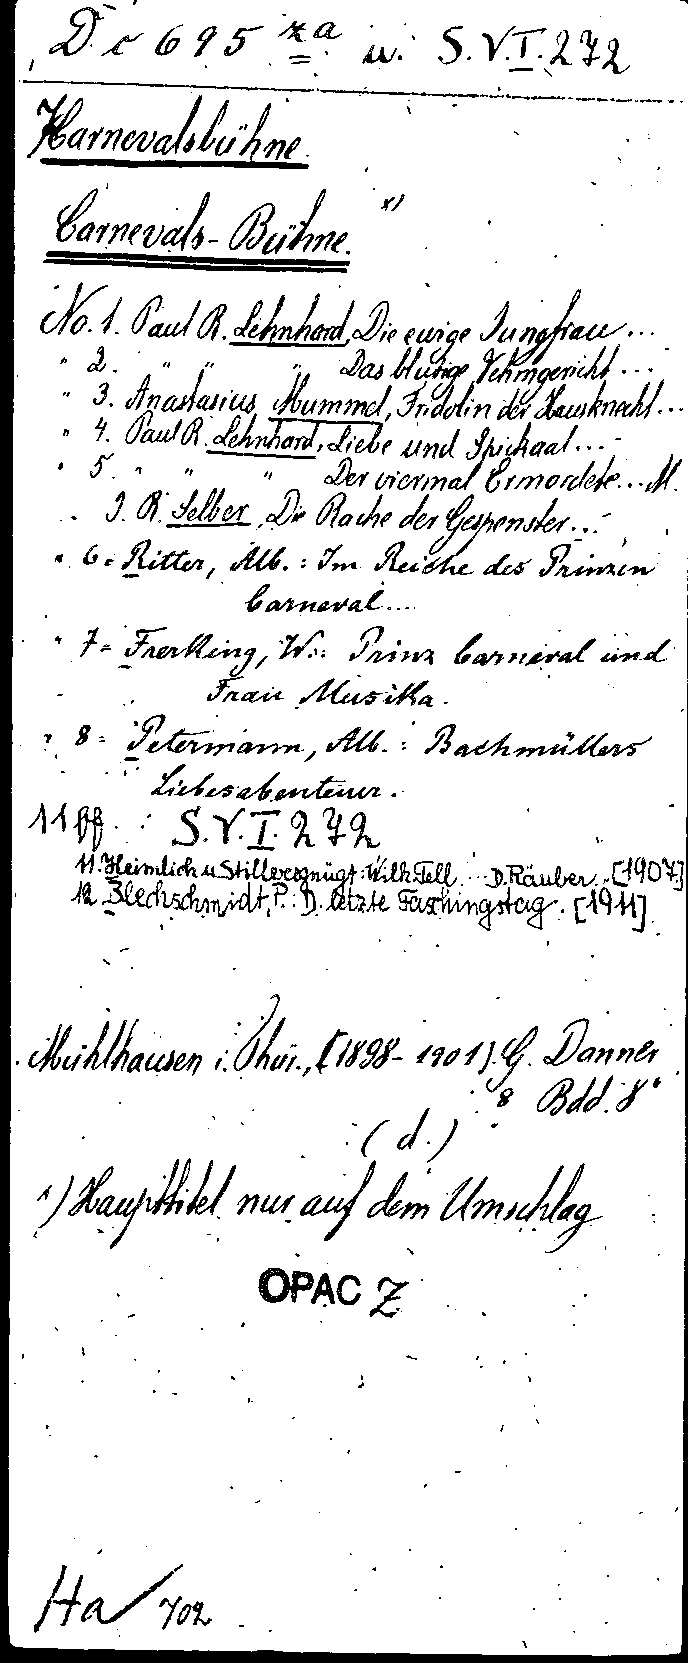 Dc 695 za u. S.V.I.272
Karnevalsbühne
Carnevals-Bühne. x)
No. 1. Paul R. Lehnhard, Die ewige Jungfrau ...
" 2. " " " Das blutige Vehmgericht ...
" 3. Anastasius Mummel, Fridolin der Hausknecht ...
" 4. Paul R. Lehnhard, Liebe und Spickaal ...
" 5. " " " Der viermal Ermordete ... M.
J. R. Selber, Die Rache der Gespenster ...
" 6 = Ritter, Alb.: Im Reiche des Prinzen
Carneval ...
" 7 = Frerking, W.: Prinz Carneval und
Frau Musika.
" 8 = Petermann, Alb.: Bachmüllers
Liebesabenteuer.
11 ff. : S.V.I.272
11. Heimlich u. Stillvergnügt: Wilh. Tell ... D. Räuber .. [1907]
12 Blechschmidt, P.: D. letzte Faschingstag. [1911]
Mühlhausen i. Thür., [1898-1901]. G. Danner
8 Bdd. 8°
(d.)
x) Haupttitel nur auf dem Umschlag
OPAC Z
Ha 702